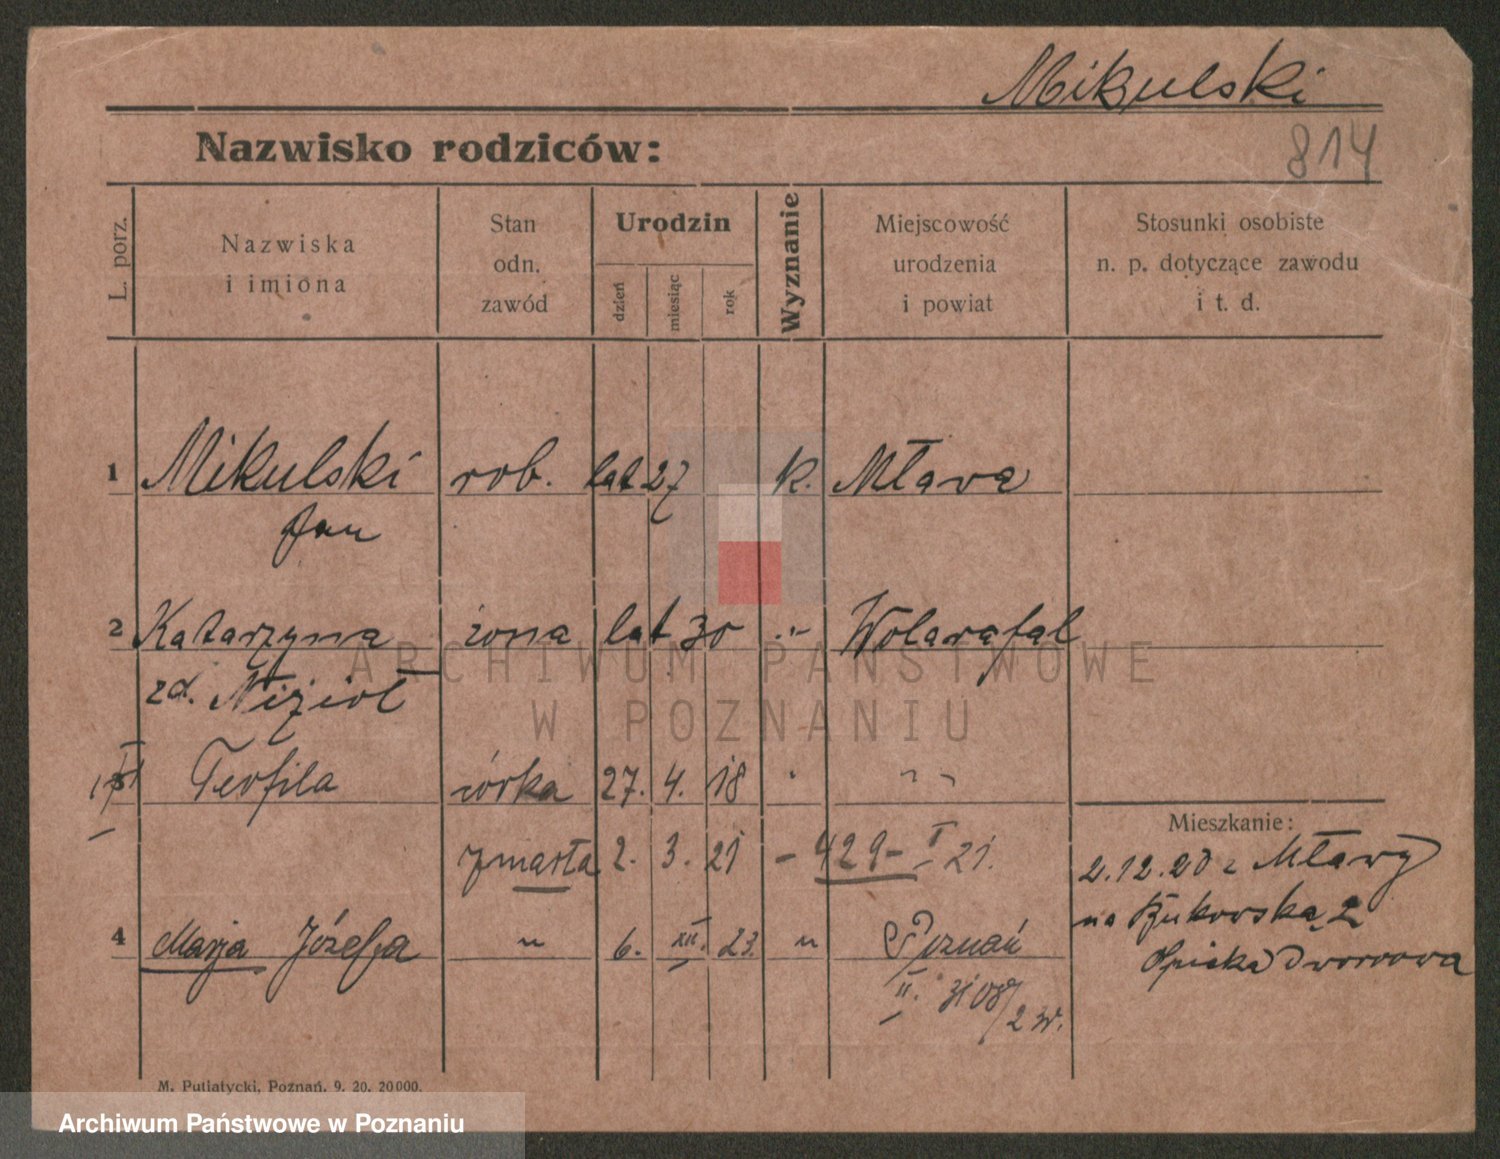 Mikulski
814
Nazwisko rodziców:
L. porz.
Nazwiska
i imiona
Stan
odn.
zawód
Urodzin
dzień
miesiąc
rok
Wyznanie
Miejscowość
urodzenia
i powiat
Stosunki osobiste
n. p. dotyczące zawodu
i t. d.
1 Mikulski rob. lat 27 k. Mława
Jan
2 Katarzyna żona lat 30 Wolarafał
zd. Nizioł
Teofila córka 27. 4. 18
zmarła 2. 3. 21 – 429 – I 21.
Mieszkanie:
2.12.20 z Mławy
na Bukowską 2
Opieka Dworcowa
4 Marja Józefa " 6. XII. 23. " Poznań
II.
ARCHIWUM PAŃSTWOWE
W POZNANIU
M. Putiatycki, Poznań. 9. 20. 20000.
Archiwum Państwowe w Poznaniu